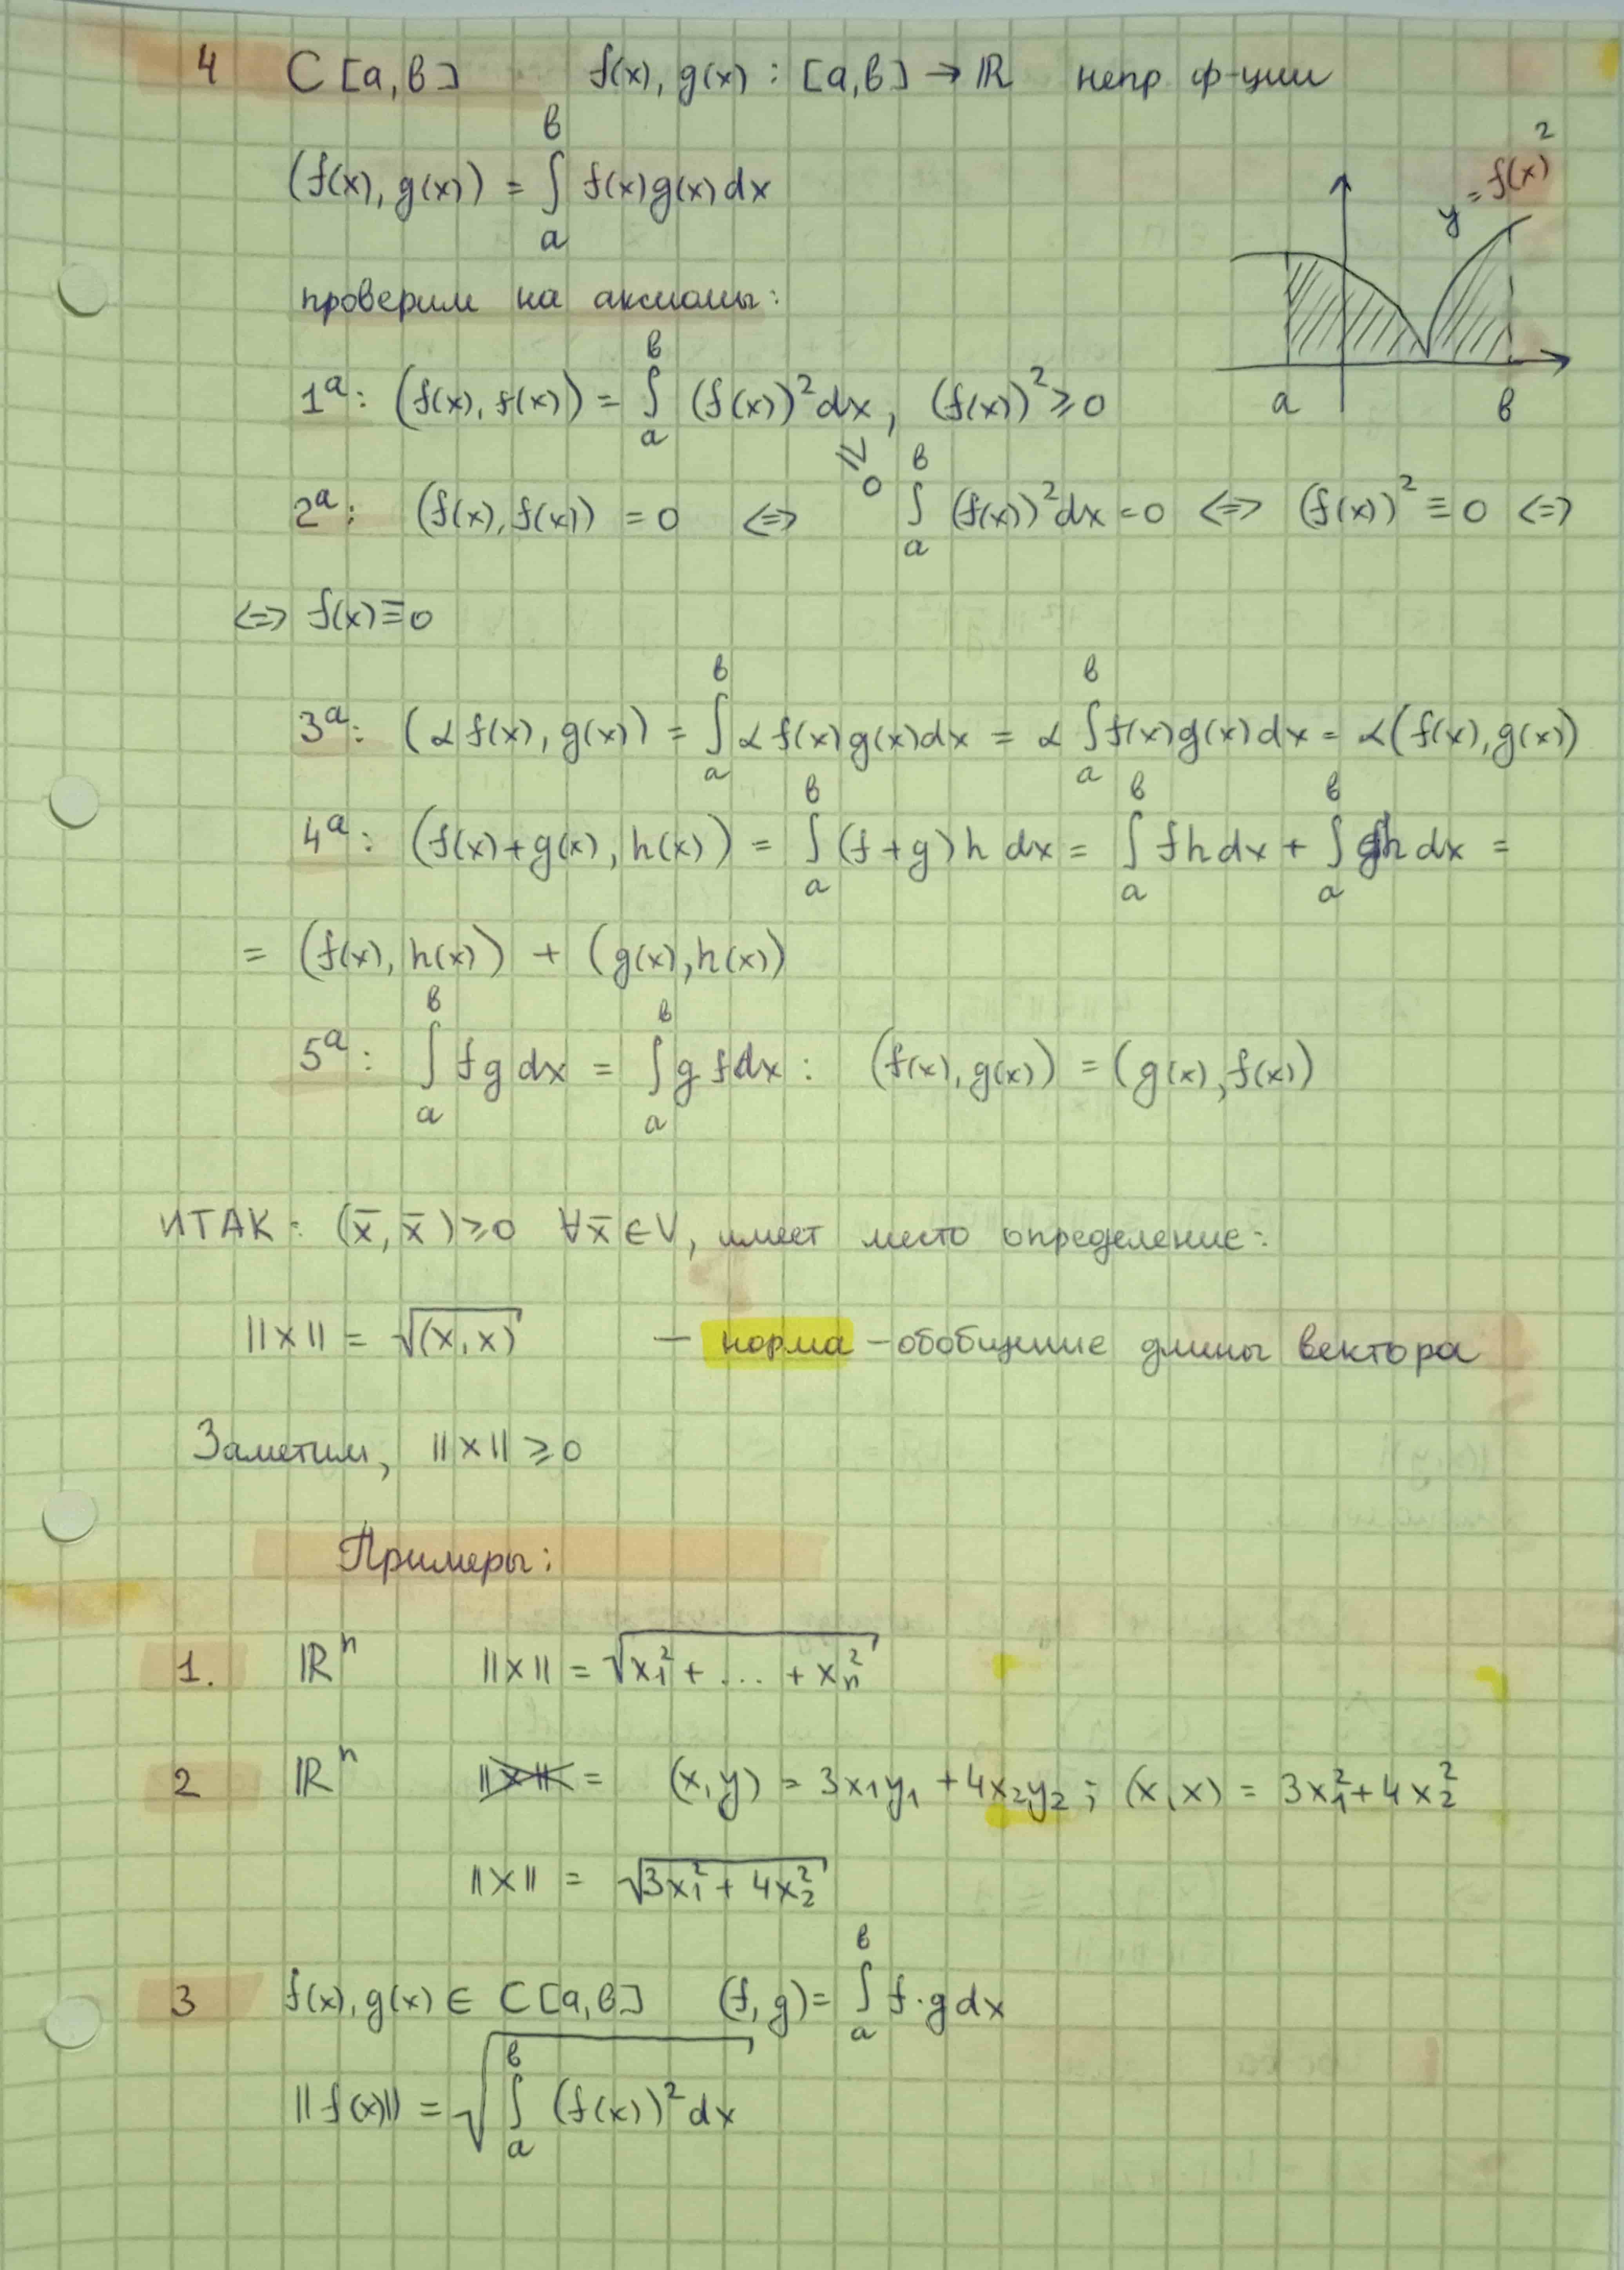 4 C [a, в] f(x), g(x) : [a, в] → ℝ непр ф-ции
(f(x), g(x)) = ∫ₐᵇ f(x)g(x)dx
y = f(x)²
a в
проверим на аксиомы:
1ᵃ: (f(x), f(x)) = ∫ₐᵇ (f(x))² dx, (f(x))² ≥ 0
≥ 0
2ᵃ: (f(x), f(x)) = 0 <=> ∫ₐᵇ (f(x))² dx = 0 <=> (f(x))² ≡ 0 <=>
<=> f(x) ≡ 0
3ᵃ: (α f(x), g(x)) = ∫ₐᵇ α f(x)g(x)dx = α ∫ₐᵇ f(x)g(x)dx = α(f(x), g(x))
4ᵃ: (f(x)+g(x), h(x)) = ∫ₐᵇ (f+g)h dx = ∫ₐᵇ fh dx + ∫ₐᵇ gh dx =
= (f(x), h(x)) + (g(x), h(x))
5ᵃ: ∫ₐᵇ fg dx = ∫ₐᵇ g f dx : (f(x), g(x)) = (g(x), f(x))
ИТАК: (x̄, x̄) ≥ 0 ∀x̄ ∈ V, имеет место определение:
||x|| = √(x, x) — норма – обобщение длины вектора
Заметим, ||x|| ≥ 0
Примеры:
1. ℝⁿ ||x|| = √x₁² + ... + xₙ²
2 ℝⁿ ||x|| = (x, y) = 3x₁y₁ + 4x₂y₂ ; (x, x) = 3x₁² + 4x₂²
||x|| = √3x₁² + 4x₂²
3 f(x), g(x) ∈ C [a, в] (f, g) = ∫ₐᵇ f·g dx
||f(x)|| = √∫ₐᵇ (f(x))² dx